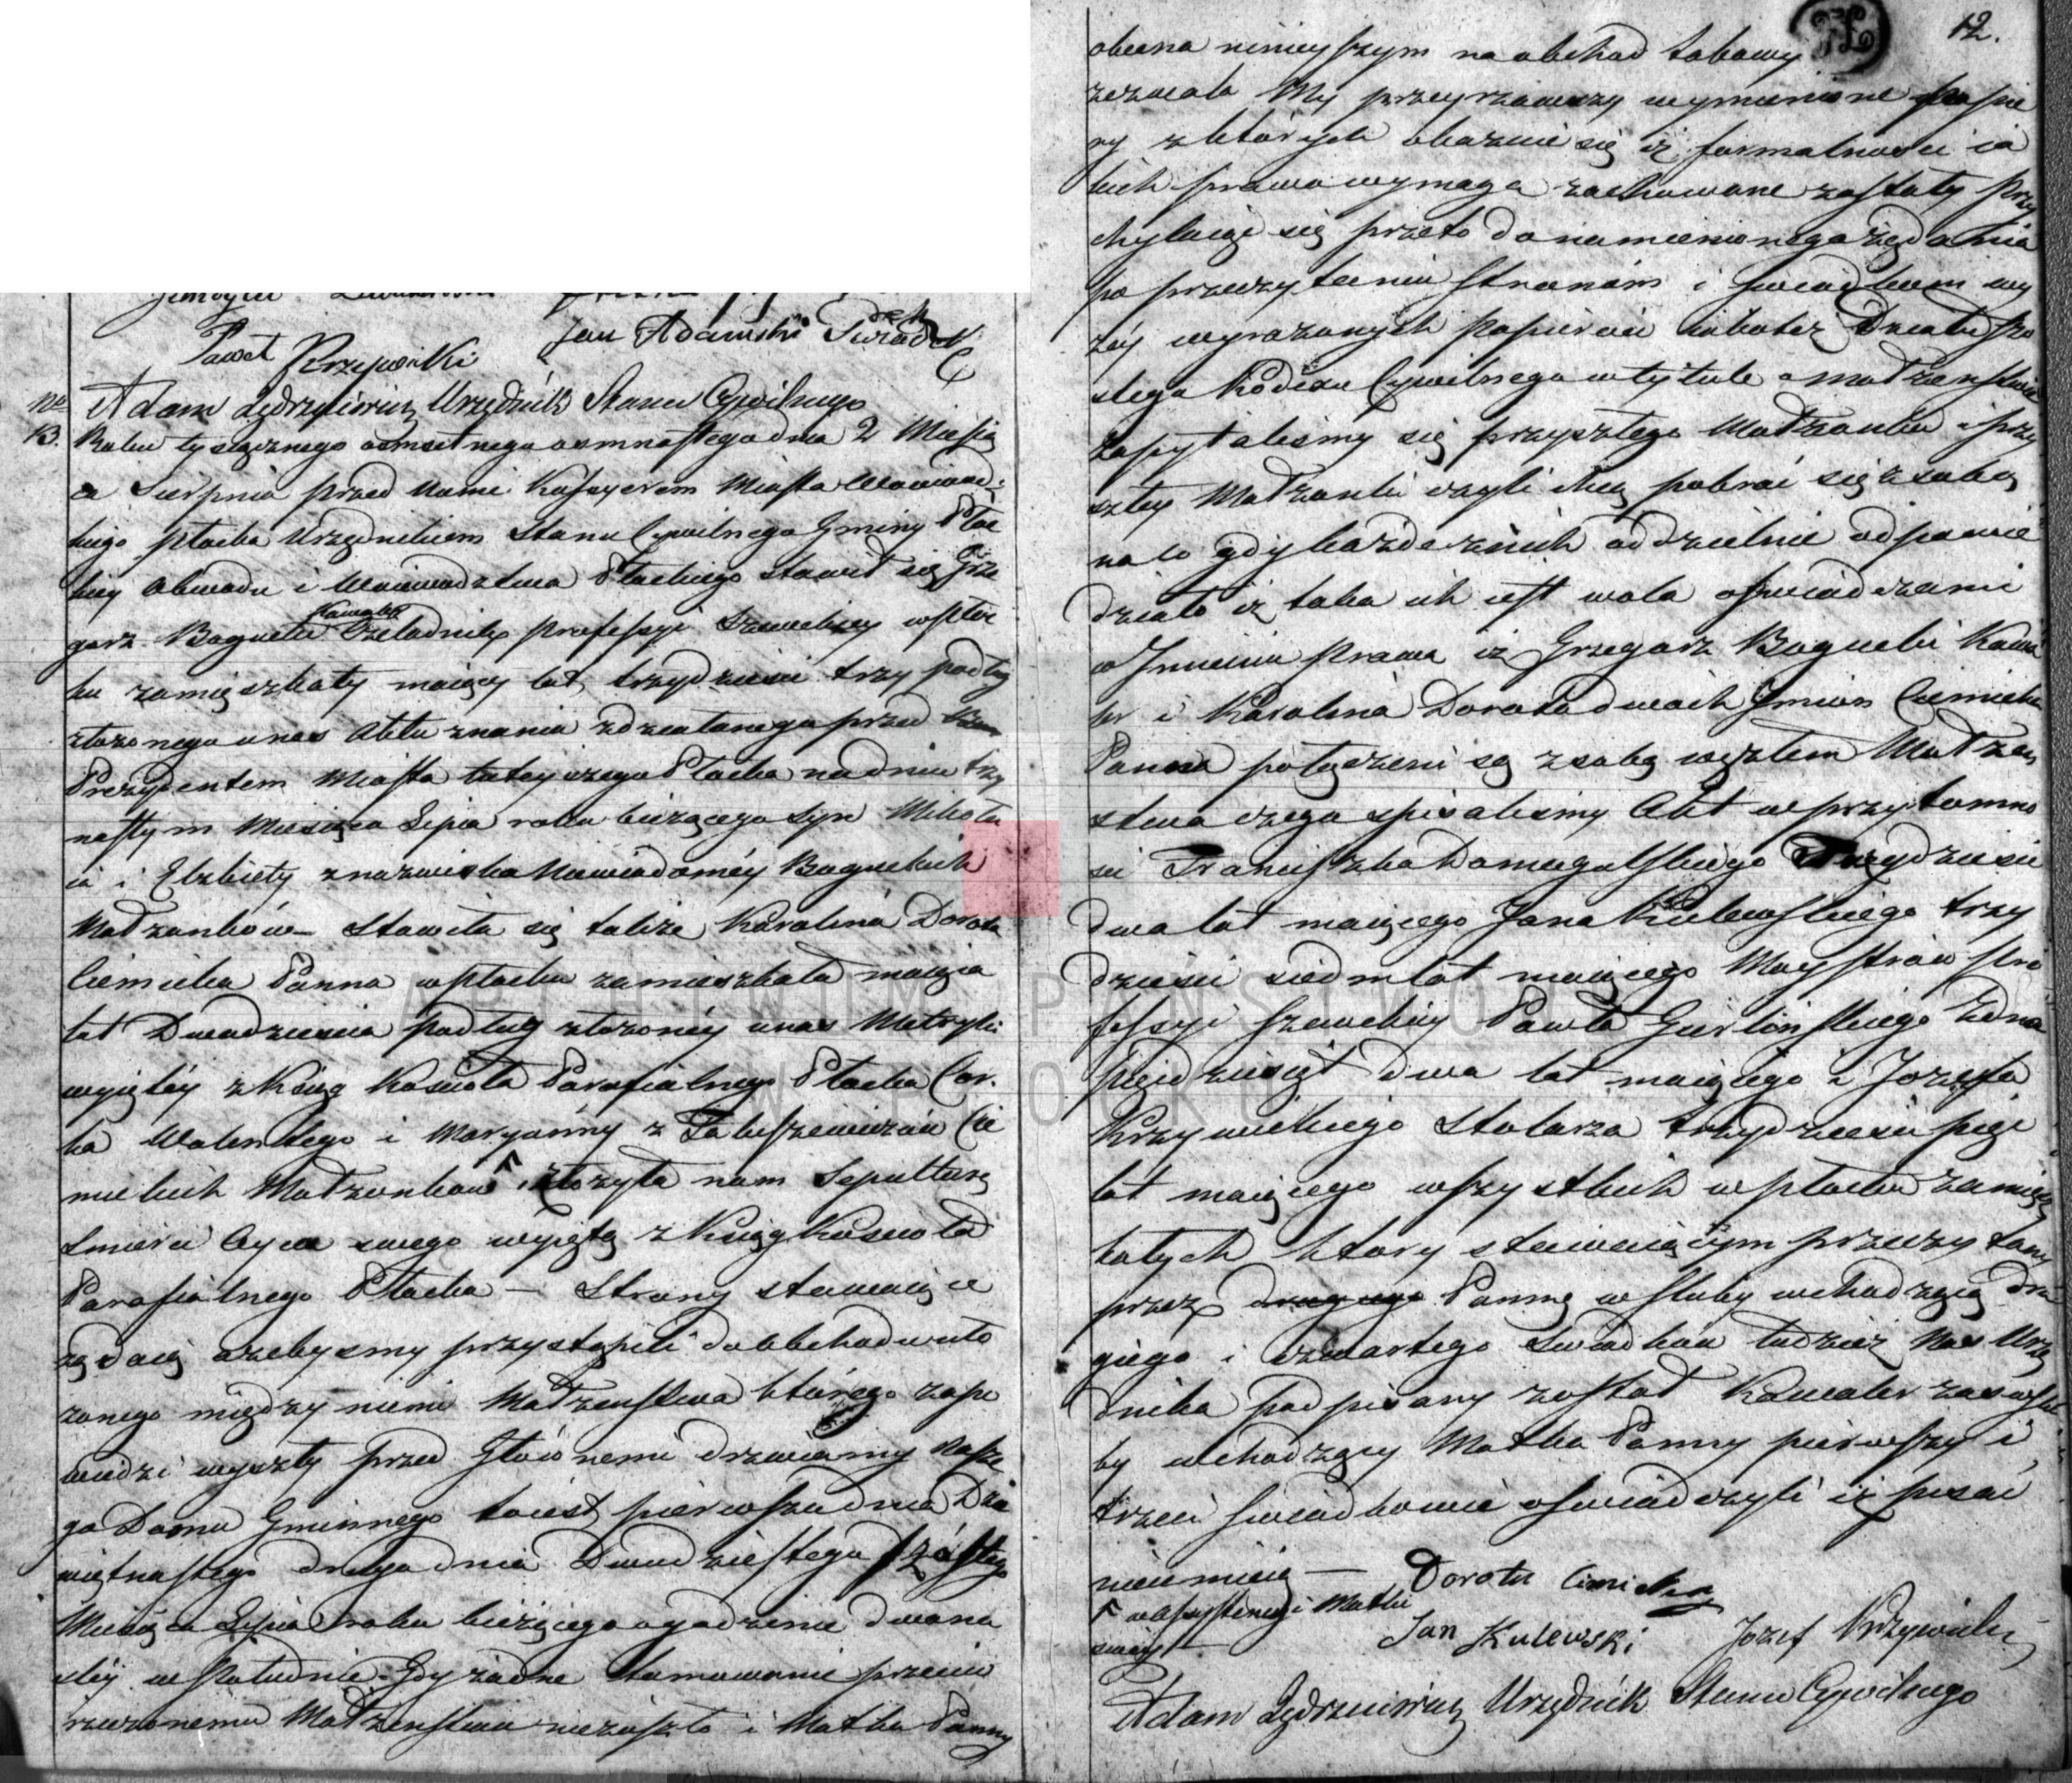 Paweł Krzywicki Jan Adamski Świadek
Adam Jędrzeiewicz Urzędnik Stanu Cywilnego
No 13.
Roku tysiącznego osmsetnego osmnastego dnia 2 Miesią
ca Sierpnia przed Nami Kassyerem Miasta Woiewódz-
kiego Płocka Urzędnikiem Stanu Cywilnego Gminy Płoc
kiey Obwodu i Woiewodztwa Płockiego stawił się Grze
gorz Bogucki Kawaler Czeladnik professyi Szewckiey w Płoc
ku zamięszkały maiący lat trzydzieści trzy podług
złożonego u nas Aktu znania zdziałanego przed
Prezydentem Miasta tuteyszego Płocka na dniu trzy
nastym Miesiąca Lipca roku bieżącego syn Mikoła
ia i Elżbiety z nazwiska Niewiadoméy Boguckich
Małżonków – Stawiła się także Karolina Dorota
Ciemicka Panna w Płocku zamieszkała maiąca
lat Dwadzieścia podług złożonéy u nas Metryki
wyiętéy z Ksiąg Kościoła Parafialnego Płocka Cor-
ka Walentego i Maryanny z Cie
mickich Małżonków i złożyła nam Sepulturę
Smierci Oyca swego wyiętą z Ksiąg Kościoła
Parafialnego Płocka – Strony stawaiące
żądaią ażebysmy przystąpili do obchodu uło
żonego między niemi Małżeństwa którego zapo
wiedzi wyszły przed Głównemi drzwiamy Nasze
go Domu Gminnego to iest pierwsza dnia Dzie
więtnastego druga dnia Dwudziestego szóstego
Miesiąca Lipca roku bieżącego o godzinie dwuna
stéy w Południe. Gdy żadne tamowanie przeciw
rzeczonemu Małżeństwu niezaszło i Matka Panny
12.
obecna ninieyszym na obchod takowy
zezwala My przeyrzawszy wymienione papie
ry z których okazuie się iż formalności ia
kich prawo wymaga zachowane zostały Przy
chylaiąc się przeto do namienionego żądania
po przeczytaniu Stronóm i Swiadkom wy
żéy wyrażonych Papierów iakoteż Działu szo
stego Kodexu Cywilnego w tytule o małżenstwie
Zapytalismy się przyszłego Małżonka i przy
szłey Małżonki czyli chcą pobrać się z sobą
na co gdy każde z nich oddzielnie odpowie
działo iż taka ich iest wola oswiadczamy
w Jmieniu Prawa iż Grzegorz Bogucki Kawa
ler i Karolina Dorota dwoch Jmion Ciemicka
Panna połączeni są z sobą węzłem Małżen
stwa czego spisalismy Akt w przytomno
ści Franciszka Domagalskiego Trzydziesci
dwa lat maiącego Jana Kulewskiego trzy
dzieści siedm lat maiącego Maystrów pro
fessyi szewckiey Pawła
Pięćdziesiąt dwa lat maiącego i Jozefa
Krzywickiego Stolarza trzydzieści pięć
lat maiącego wszystkich w Płocku zamiesz
kałych ktory stawaiącym przeczytany
przez drugiego Pannę w sluby wchodzącą dru
giego i czwartego Swiadków tudzież Nas Urzę
dnika podpisany został Kawaler zaś w slu
by wchodzący Matka Panny pierwszy i
trzeci swiadkowie oswiadczyli iż pisać
nieumieią – Dorota Cimicka
w assystencyi Matki
swéy – Jan Kulewski Jozef Krzywicki
Adam Jędrzeiewicz Urzędnik Stanu Cywilnego
ARCHIWUM PAŃSTWOWE
W PŁOCKU